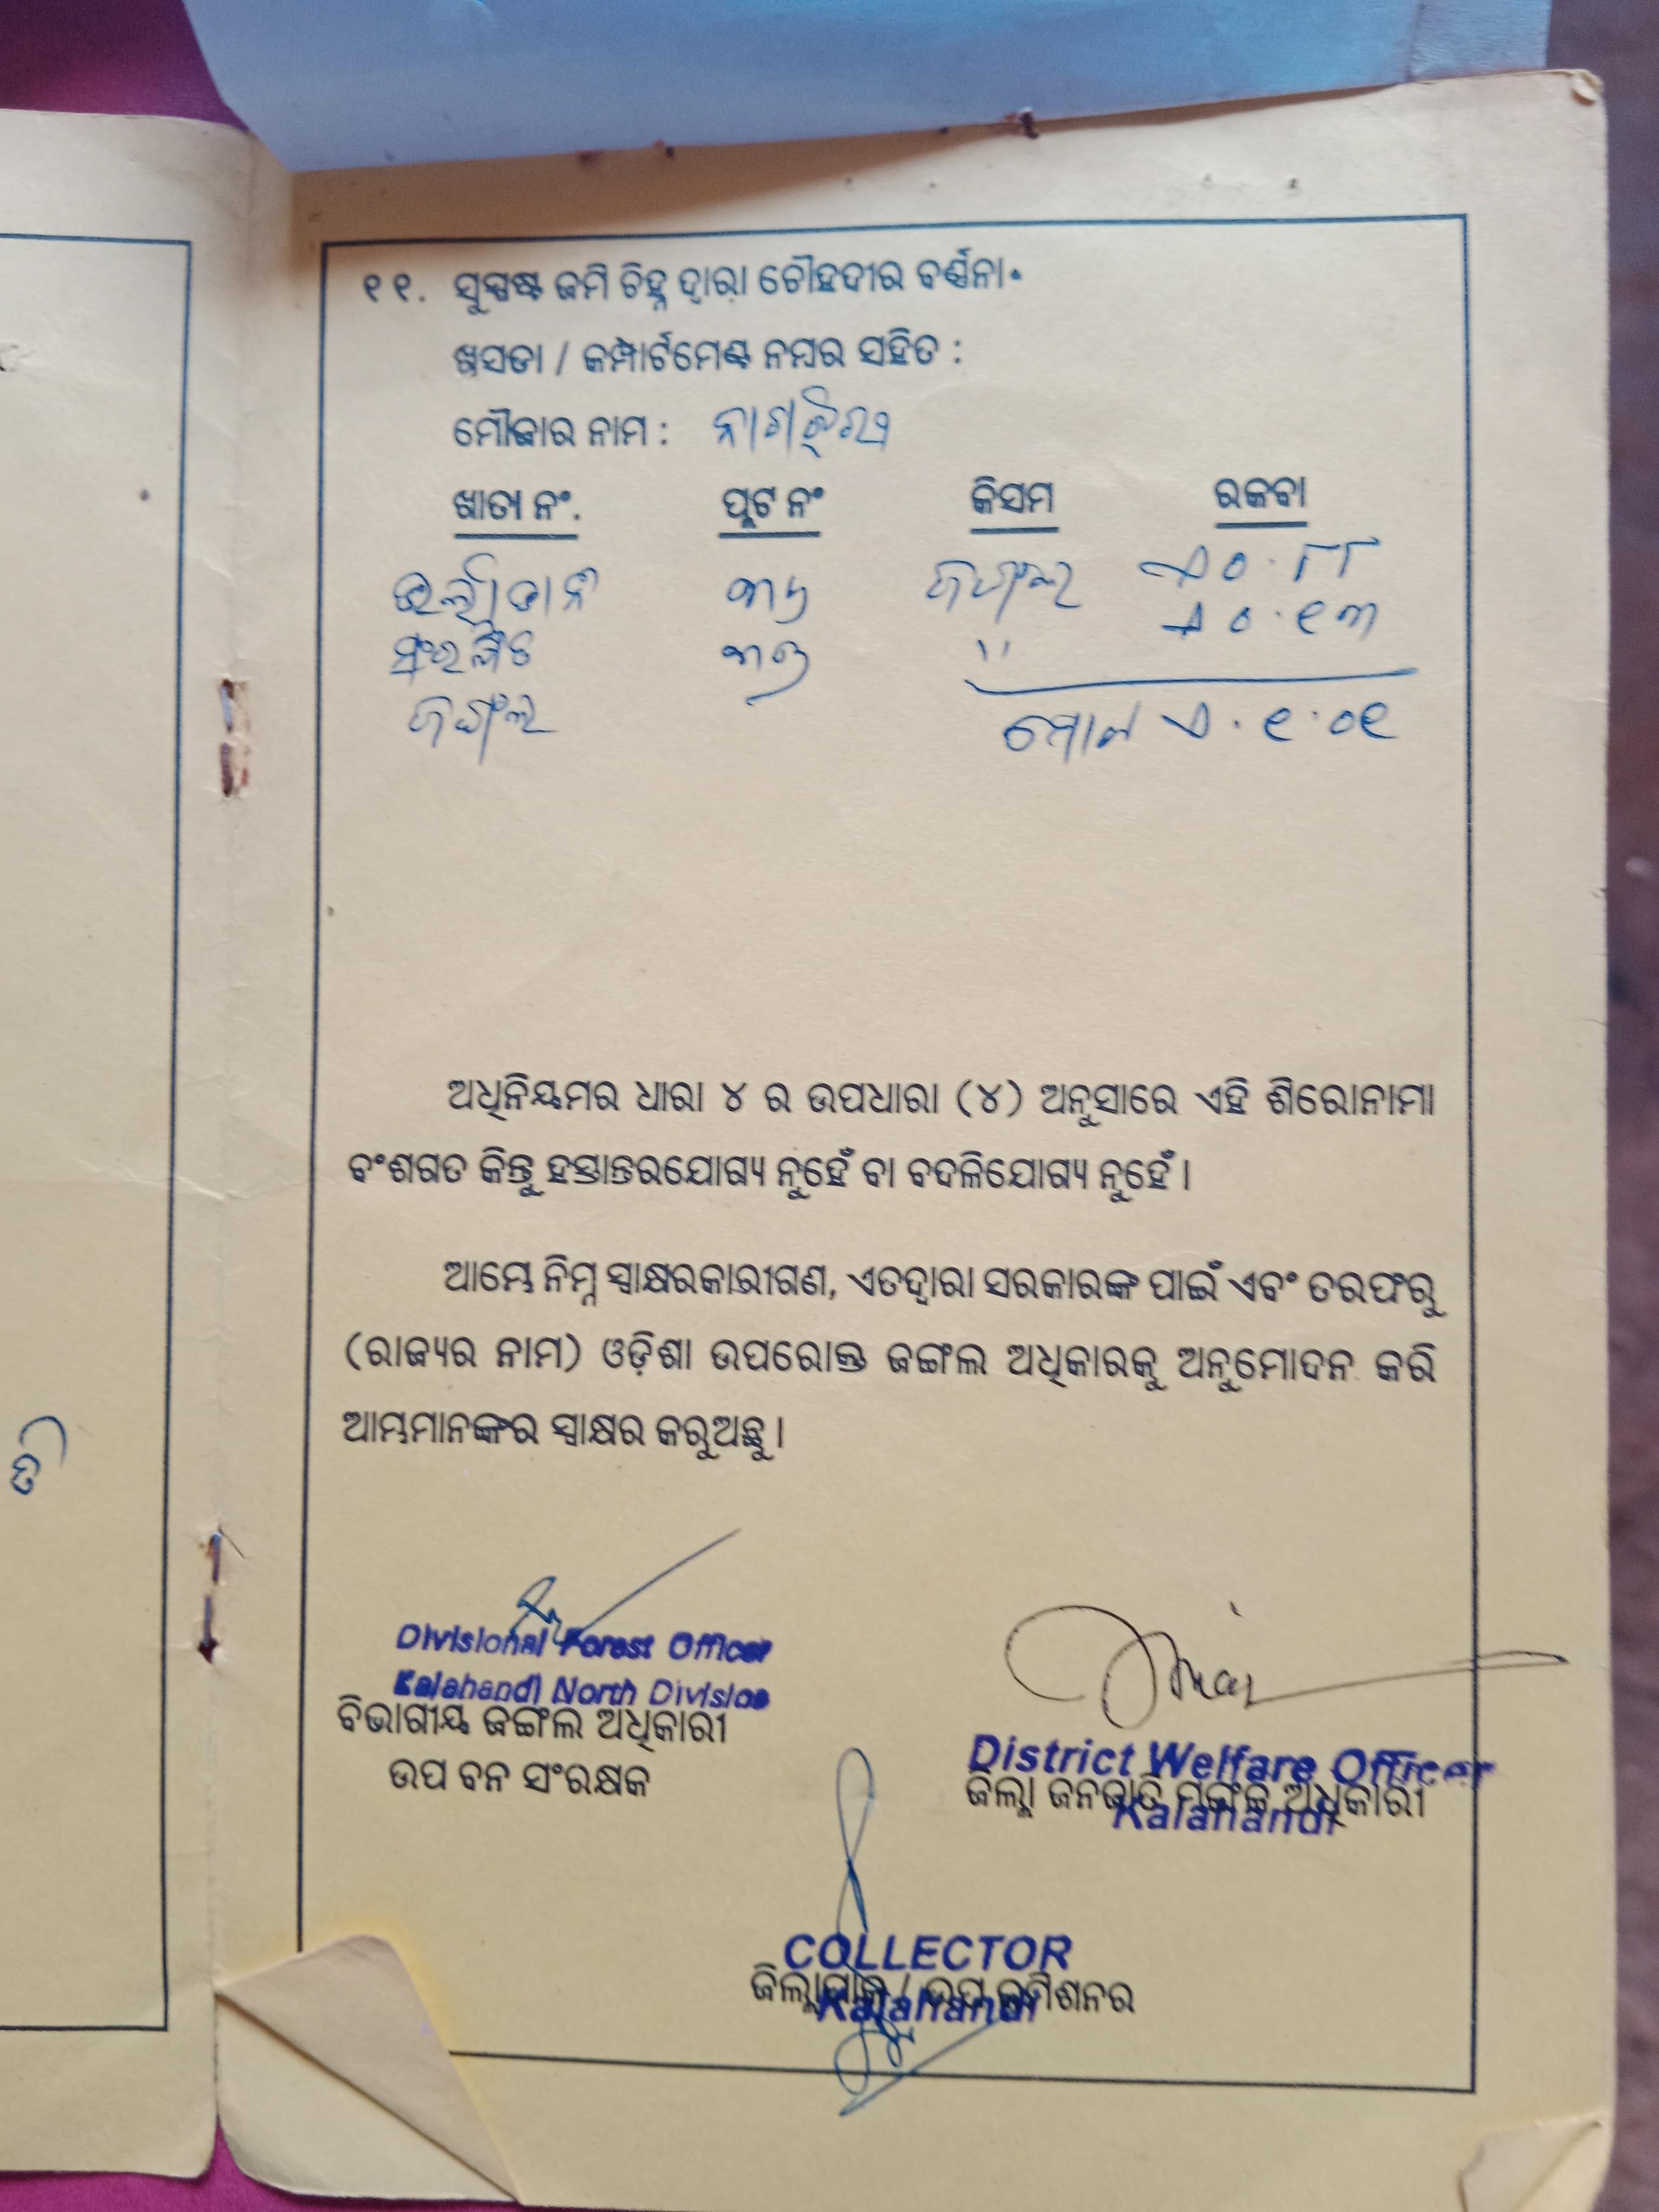 ୧୧. ସୁସ୍ପଷ୍ଟ ଜମି ଚିହ୍ନ ଦ୍ୱାରା ଚୌହଦୀର ବର୍ଣ୍ଣନା.
ଖସଡା / କମ୍ପାର୍ଟମେଣ୍ଟ ନମ୍ବର ସହିତ :
ମୌଜାର ନାମ :
ଖାତା ନଂ. ପ୍ଲଟ ନଂ କିସମ ରକବା
୩୫ ଜଙ୍ଗଲ ଏ ୦.୮୮
ସଂରକ୍ଷିତ ୩୬ " ଏ ୦.୧୩
ଜଙ୍ଗଲ ମୋଟ ଏ.୧.୦୧
ଅଧିନିୟମର ଧାରା ୪ ର ଉପଧାରା (୪) ଅନୁସାରେ ଏହି ଶିରୋନାମା
ବଂଶଗତ କିନ୍ତୁ ହସ୍ତାନ୍ତରଯୋଗ୍ୟ ନୁହେଁ ବା ବଦଳିଯୋଗ୍ୟ ନୁହେଁ ।
ଆମ୍ଭେ ନିମ୍ନ ସ୍ୱାକ୍ଷରକାରୀଗଣ, ଏତଦ୍ୱାରା ସରକାରଙ୍କ ପାଇଁ ଏବଂ ତରଫରୁ
(ରାଜ୍ୟର ନାମ) ଓଡ଼ିଶା ଉପରୋକ୍ତ ଜଙ୍ଗଲ ଅଧିକାରକୁ ଅନୁମୋଦନ କରି
ଆମ୍ଭମାନଙ୍କର ସ୍ୱାକ୍ଷର କରୁଅଛୁ ।
Divisional Forest Officer
Kalahandi North Division
ବିଭାଗୀୟ ଜଙ୍ଗଲ ଅଧିକାରୀ
ଉପ ବନ ସଂରକ୍ଷକ
District Welfare Officer
ଜିଲ୍ଲା ଜନଜାତି ମଙ୍ଗଳ ଅଧିକାରୀ
Kalahandi
COLLECTOR
ଜିଲ୍ଲାପାଳ / ଉପ କମିଶନର
Kalahandi